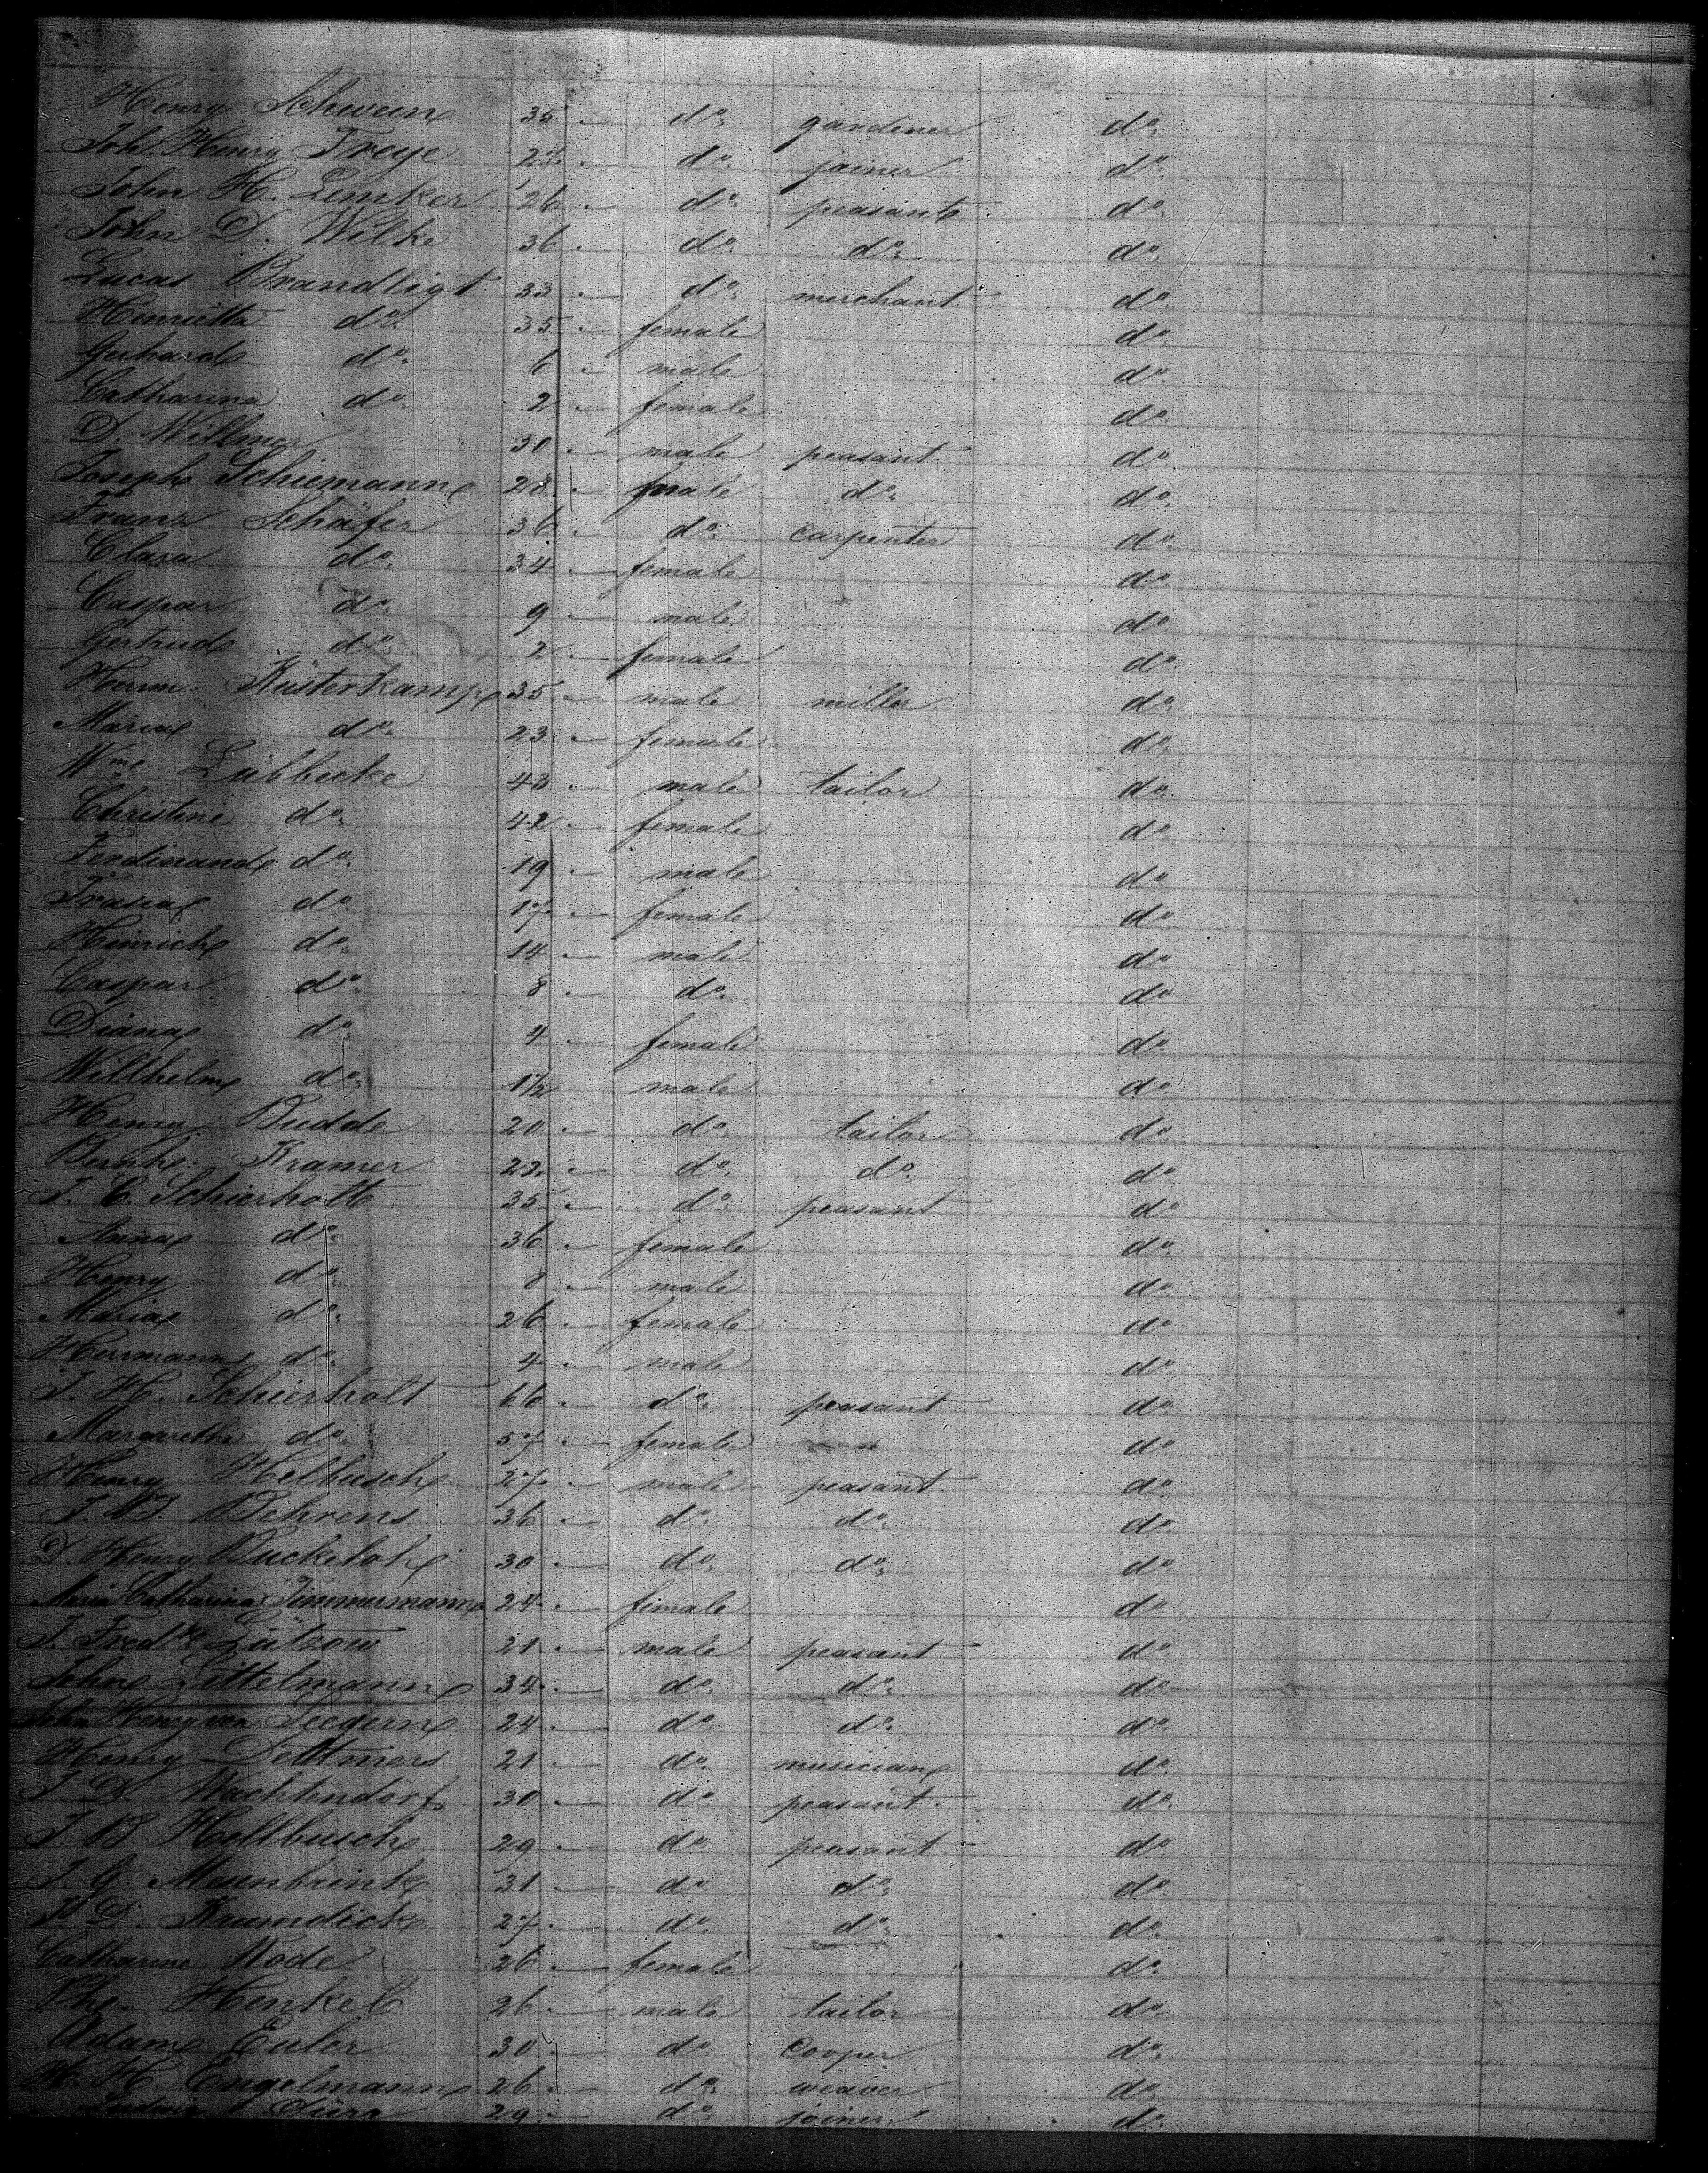 Henry Schwein 35 do gardener do
Joh. Henry Freye do joiner do
John H. Lemker 26 do peasant do
John D. Wilke 36 do do do
Lucas Brandligt 33 do merchant do
Henrietta do 35 female do
Gerhard do 6 male do
Catharina do 2 female do
D. Willmer 30 male peasant do
Joseph Schiemann 28 male do do
Franz Schäfer 36 do carpenter do
Clara do 34 female do
Caspar do 9 male do
Gertrud do 2 female do
Herm. Küsterkamp 35 male miller do
Maria do 23 female do
Wme Lübbecke 43 male tailor do
Christine do 42 female do
Ferdinand do 19 male do
do 17 female do
Heinrich do 14 male do
Caspar do 8 do do
Diana do 4 female do
Willhelm do 1½ male do
Henry Budde 20 do tailor do
Bernh. Kramer 22 do do do
J. C. Schierholt 35 do peasant do
Anna do 36 female do
Henry do 8 male do
Maria do 26 female do
Herrmann do 4 male do
J. H. Schierholt 66 do peasant do
Margarethe do 57 female do
Henry Helbusch 27 male peasant do
J. B. Behrens 36 do do do
D. Henry Buckeloh 30 do do do
Maria Catharina Timmermann 24 female do
J. Fredk Lützow 21 male peasant do
John Littelmann 34 do do do
John Henry von Seegern 24 do do do
Henry Dettmers 21 do musician do
J D. Wachtendorf 30 do peasant do
J B Hellbusch 29 do peasant do
J. G. Meienbrink 31 do do do
J. D. Krumdick 27 do do do
Catharine Rode 26 female do
Phe. Henkel 26 male tailor do
Adam Euler 30 do cooper do
H. H. Engelmann 26 do weaver do
29 do joiner do